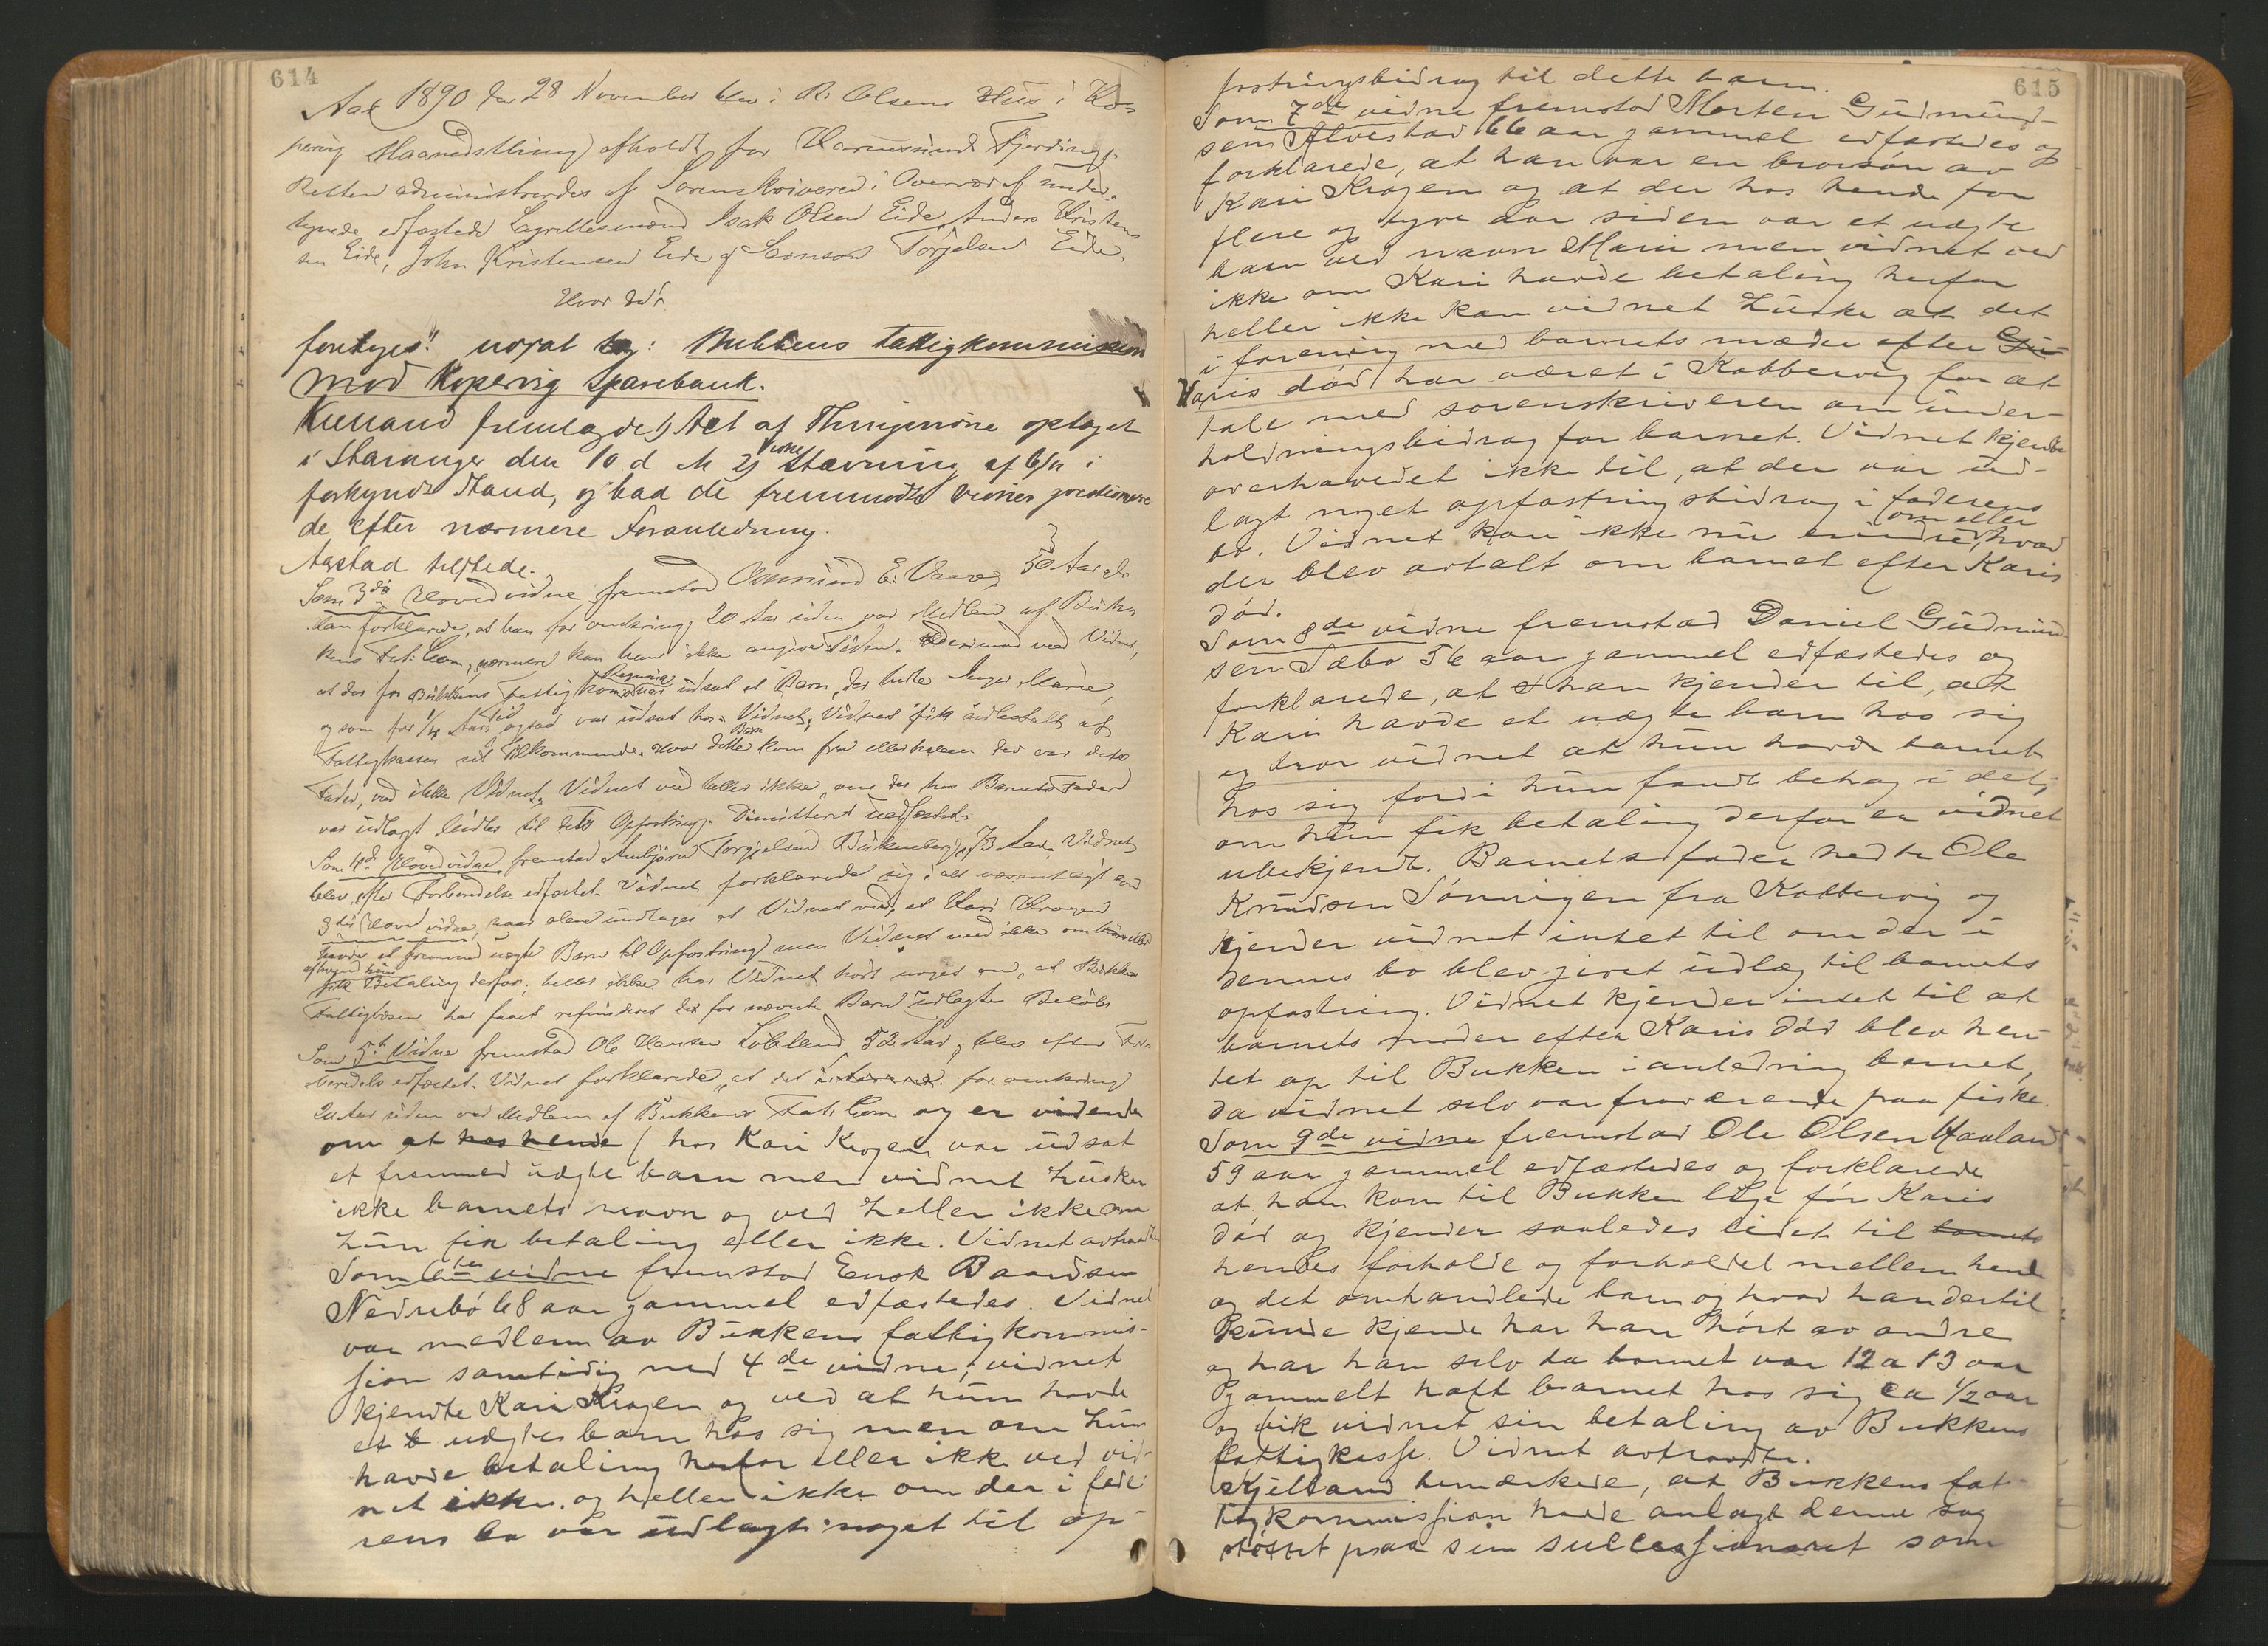 614
Aar 1890 den 28 November blev i R. Olsens Hus i Ko-
pervig Maanedsthing afholdt for Karmsund Fjerding.
Retten administreredes af Sorenskriveren i Overvær af under-
tegnede edfæstede Lagrettesmænd Isak Olsen Eide, Anders Kristen-
sen Eide, John Kristensen Eide og Torjelsen Eide.
Hvor da!
foretoges: Bukkens Fattigkommission
mod Kopervig Sparebank.
Kielland fremlagde 1) Act af Thingsvidne optaget
i Stavanger den 10 d M 2) Stævning af 6/11 i
forkyndt Stand, og bad de fremmødte Vidner
de efter nærmere Foranledning.
Aastad tilstede.
Som 3die Hovedvidne fremstod E. 50 Aar gl.
Han forklarede, at han for omkring 20 Aar siden var Medlem af Buk-
kens Fat: Com, nærmere kan han ikke angive Tiden. Derimod ved Vidnet,
at der for Bukkens Fattig Regning var udsat et Barn, der hedte Inger Marie,
og som for 1/4 Aars Tid ogsaa var udsat hos Vidnet. Vidnet fik udbetalt af
Fattigkassen sit Tilkommende. Hvor dette Barn kom fra eller hvem der var dets
Fader, ved ikke Vidnet. Vidnet ved heller ikke, om der hos Barnets Fader
var udlagt Midler til dets Opfostring. Dimitteret uedfæstet.
Som 4de Hovedvidne fremstod Torgjelsen 73 Aar. Vidnet
blev efter Forberedelse edfæstet. Vidnet forklarede sig i alt væsentligt som
3die Hovedvidne, naar alene undtages at Vidnet ved, at Kari Krogen
havde et fremmed uægte Barn til Opfostring men Vidnet ved ikke om
fik Betaling derfor; heller ikke har Vidnet hørt noget om, at Bukkens
Fattigvæsen har faaet refunderet det for nævnte Barn udlagte Beløb.
Som 5te Vidne fremstod Ole Hansen 52 Aar, blev efter For-
beredelse edfæstet. Vidnet forklarede, at det for omkring
20 Aar siden var Medlem af Bukkens Fat: Com og er vidende
om at hos hende (hos Kari Krogen var udsat
et fremmed uægte barn men vidnet husker
ikke barnets navn og ved heller ikke om
hun fik betaling eller ikke. Vidnet avtraadte
Som 6te vidne fremstod Enok Baardsen
Nedrebø 68 aar gammel edfæstedes. Vidnet
var medlem av Bukkens fattigkommis-
sjon samtidig med 4de vidne; vidnet
kjendte Kari Krogen og ved at hun havde
et uægtes barn hos sig men om hun
havde betaling herfor eller ikke ved vid-
net ikke. og heller ikke om der i fade-
rens bo var udlagt noget til op-
615
fostringsbidrag til dette barn.
Som 7de vidne fremstod Morten Gudmund-
sen Alvestad 66 aar gammel edfæstedes og
forklarede, at han var en brorsøn av
Kari Krogen og at der hos hende for
flere og tyve aar siden var et uægte
barn ved navn Marie men vidnet ved
ikke om Kari havde betaling herfor
heller ikke kan vidnet huske at det
i forening med barnets moder efter Gu-
Karis død har været i Kobbervig for at
tale med sorenskriveren om under-
holdningsbidrag for barnet. Vidnet kjender
overhovedet ikke til, at der var ud-
lagt noget opfostringsbidrag i faderens
bo. Vidnet kan ikke nu erindre, om eller hvad
der blev avtalt om barnet efter Karis
død.
Som 8de vidne fremstod Daniel Gudmund-
sen Sæbø 56 aar gammel edfæstedes og
forklarede, at han kjender til, at
Kari havde et uægte barn hos sig
og tror vidnet at hun havde barnet
hos sig fordi hun fandt behag i det;
om hun fik betaling derfor er vidnet
ubekjendt. Barnets fader hedte Ole
Knudsen Sønningen fra Kobbervig og
kjender vidnet intet til om der i
dennes bo blev givet udlæg til barnets
opfostring. Vidnet kjender intet til at
barnets moder efter Karis død blev hen-
tet op til Bukken i anledning barnet,
da vidnet selv var fraværende paa fiske.
Som 9de vidne fremstod Ole Olsen Haaland
59 aar gammel edfæstedes og forklarede
at han kom til Bukken lige før Karis
død og kjender saaledes lidet til barnets
hendes forholde og forholdet mellem hende
og det omhandlede barn og hvad han dertil
kunde kjende har han hørt av andre
og har han selv da barnet var 12 a 13 aar
gammelt haft barnet hos sig ca 1/2 aar
og fik vidnet sin betaling av Bukkens
fattigkasse. Vidnet avtraadte.
Kjelland bemærkede, at Bukkens fat-
tigkommission havde anlagt denne sag
støttet paa sin successionsret som